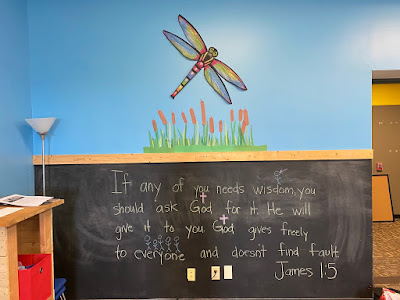 If any of you needs wisdom, you
should ask God for it. He will
give it to you. God gives freely
to everyone and doesn't find fault.
James 1:5